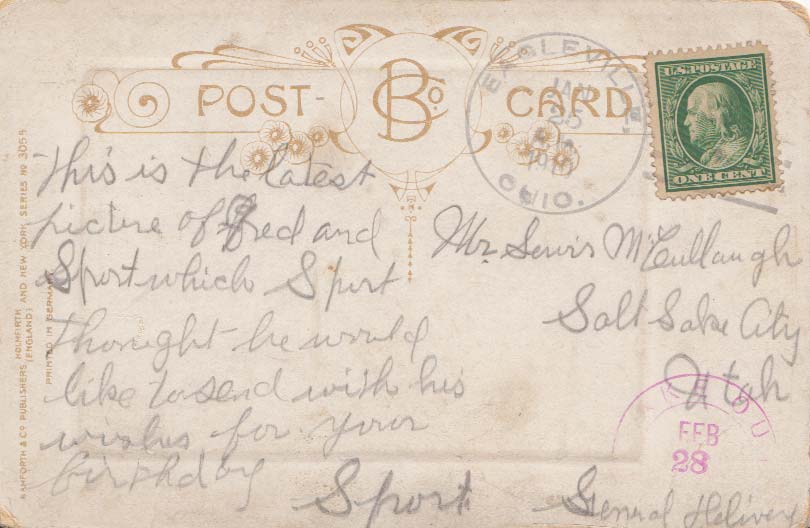 POST- B Co. CARD
EAGLEVILLE
JAN
25
OHIO.
U.S. POSTAGE
ONE CENT
This is the latest
picture of Fred and
Sport which Sport
thought he would
like to send with his
wishes for your
birthday
Sport
Mr. Lewis McCullaugh
Salt Lake City
Utah
General Delivery
FEB
28
BAMFORTH & CO PUBLISHERS, HOLMFIRTH AND NEW YORK. SERIES NO 3054
(ENGLAND)
PRINTED IN GERMANY